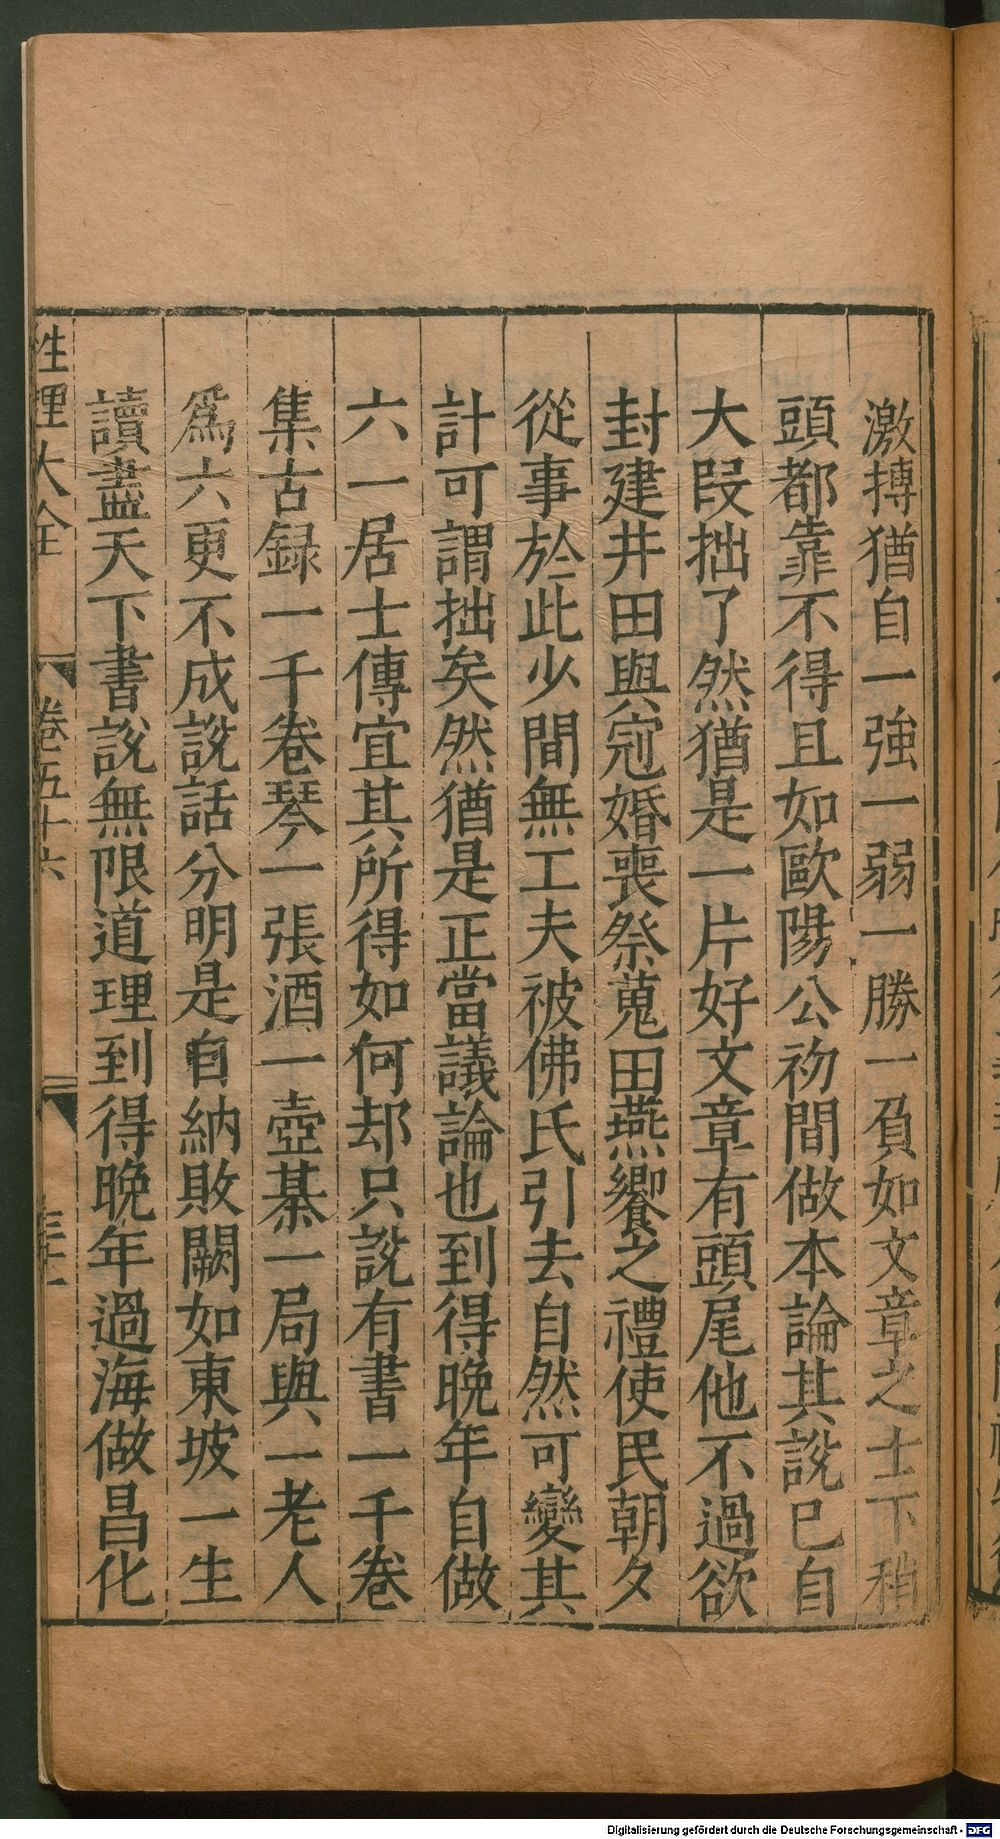 激摶猶自一強一弱一勝一負如文章之士下稍
頭都靠不得且如歐陽公初間做本論其說已自
大段拙了然猶是一片好文章有頭尾他不過欲
封建井田與冠婚喪祭蒐田燕饗之禮使民朝夕
從事於此少間無工夫被佛氏引去自然可變其
計可謂拙矣然猶是正當議論也到得晚年自做
六一居士傳宜其所得如何却只說有書一千卷
集古録一千卷琴一張酒一壺棊一局與一老人
爲六更不成說話分明是自納敗闕如東坡一生
讀盡天下書說無限道理到得晚年過海做昌化
性理大全 卷五十六
Digitalisierung gefördert durch die Deutsche Forschungsgemeinschaft - DFG